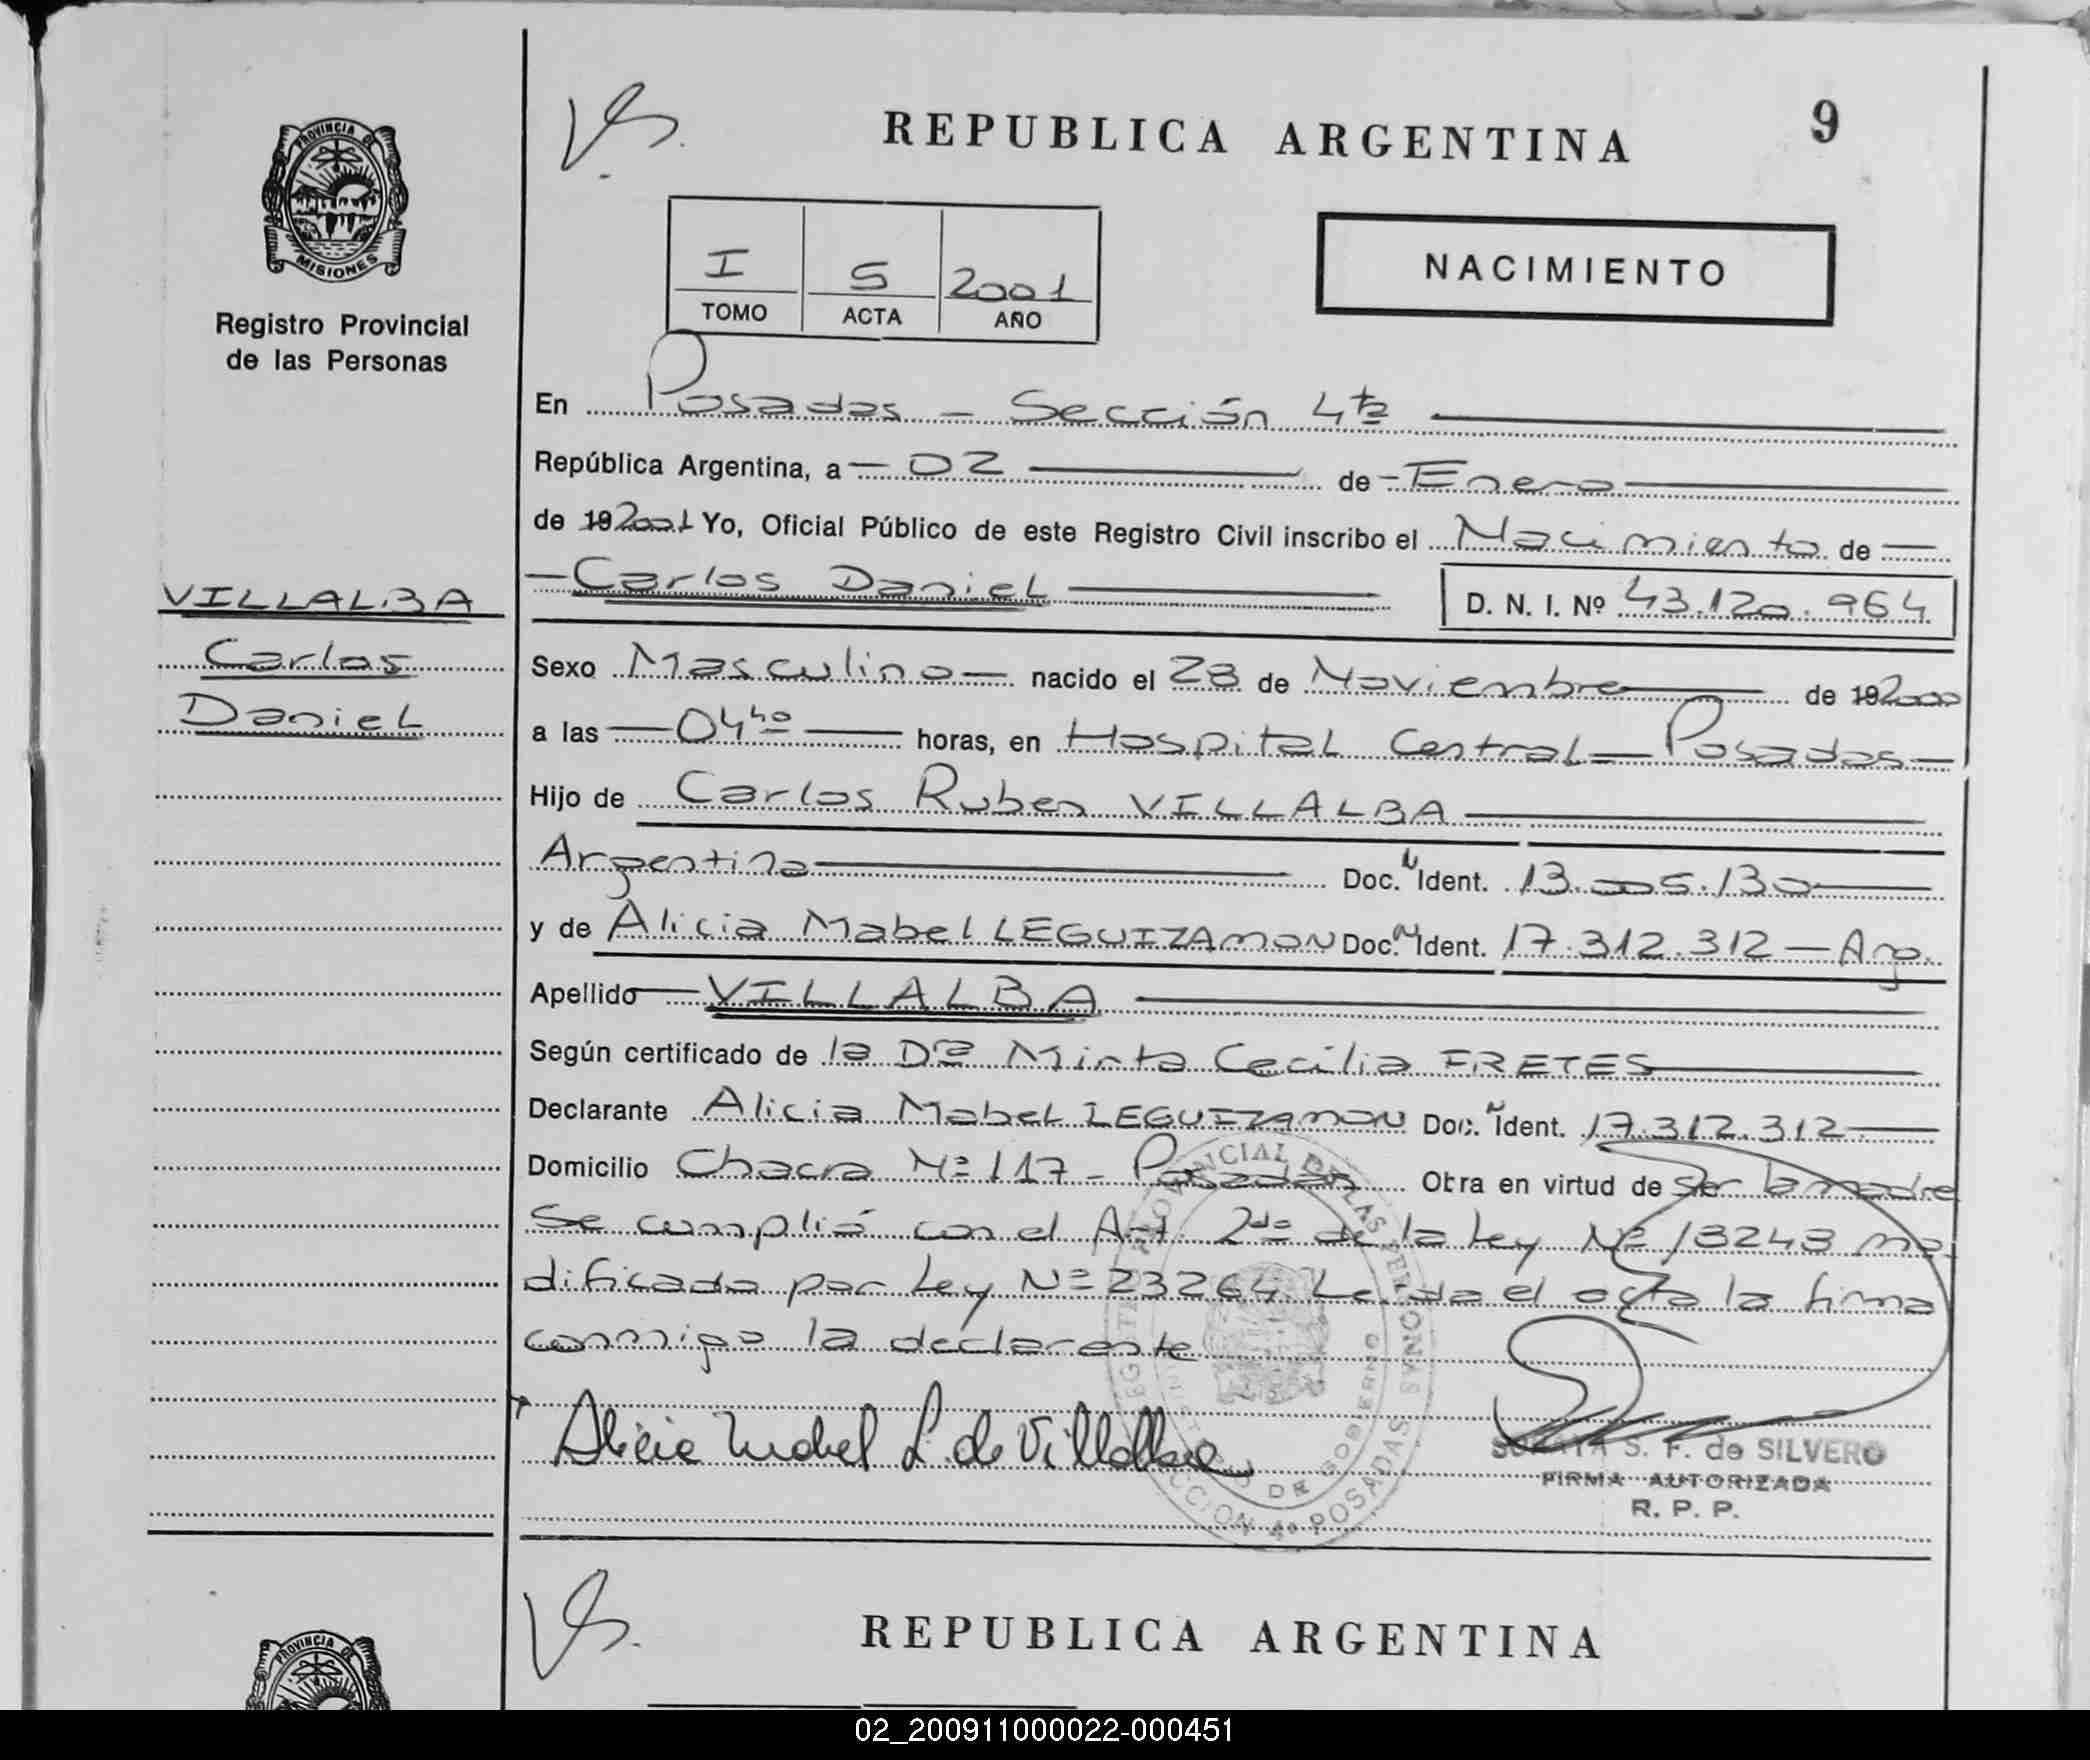 REPUBLICA ARGENTINA
9
PROVINCIA DE
MISIONES
Registro Provincial
de las Personas
I
TOMO
5
ACTA
2001
AÑO
NACIMIENTO
En Posadas - Sección 4ta
República Argentina, a - 02 de - Enero
de 192001 Yo, Oficial Público de este Registro Civil inscribo el Nacimiento de
Carlos Daniel D. N. I. Nº 43.120.964
VILLALBA
Carlos
Daniel
Sexo Masculino nacido el 28 de Noviembre de 192000
a las 04 40 horas, en Hospital Central - Posadas -
Hijo de Carlos Ruben VILLALBA
Argentina Doc. N Ident. 13.005.130
y de Alicia Mabel LEGUIZAMON Doc. N Ident. 17.312.312 - Arg.
Apellido VILLALBA
Según certificado de la Dra Mirta Cecilia FRETES
Declarante Alicia Mabel LEGUIZAMON Doc. N Ident. 17.312.312.
Domicilio Chacra Nº 117 - Posadas Obra en virtud de ser la madre
Se cumplió con el Art. 2do de la Ley Nº 18248 mo-
dificada por Ley Nº 23264 Leida el acta la firma
conmigo la declarante
Alicia Mabel L. de Villalba
S. F. de SILVERO
FIRMA AUTORIZADA
R. P. P.
SECCION 4ª POSADAS
REPUBLICA ARGENTINA
PROVINCIA DE
02_200911000022-000451